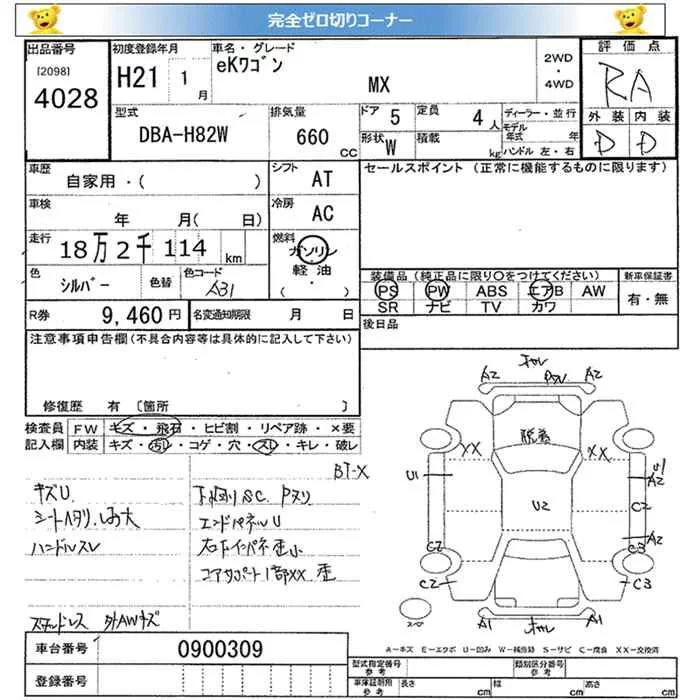 完全ゼロ切りコーナー
出品番号 初度登録年月 車名・グレード 評価点
[2098] 4028 H21 1月 eKワゴン MX 2WD・4WD RA
型式 排気量 ドア 5 定員 4人 ディーラー・並行 外装 内装
DBA-H82W 660 CC 形状 W 積載 kg モデル年式 年 D D
ハンドル 左・右
車歴 シフト セールスポイント (正常に機能するものに限ります)
自家用・( ) AT
車検 冷房
年 月( 日) AC
走行 燃料
18万2千114 km ガソリン・軽油
色 シルバー 色替 色コード A31 ( ・ )
装備品(純正品に限り○をつけてください) 新車保証書
PS PW ABS エアB AW 有・無
SR ナビ TV カワ
R券 9,460円 名変通知期限 月 日
後日品
注意事項申告欄(不具合内容等は具体的に記入して下さい)
修復歴 有 〔箇所 〕
検査員 FW キズ・飛石・ヒビ割・リペア跡・×要
記入欄 内装 キズ・汚レ・コゲ・穴・スレ・キレ・破レ
BT-X
キズU 下回りSC Pヌリ
シートヘタリ、しみ大 エンドパネルU
ハンドルスレ
コアサポート1部XX 歪
スタッドレス 外AWキズ
キャレ
A2 A2
脱着
XX XX
U1 U1 A2
U2 C2
A2
C2 C3
C2 C3
A1 キャレ A1
A-キズ E-エクボ U-凹み W-補修跡 S-サビ C-腐食 XX-交換済
車台番号 0900309
登録番号
型式指定番号 参考 類別区分番号 参考
車庫証明用 参考 長さ cm 幅 cm 高さ cm